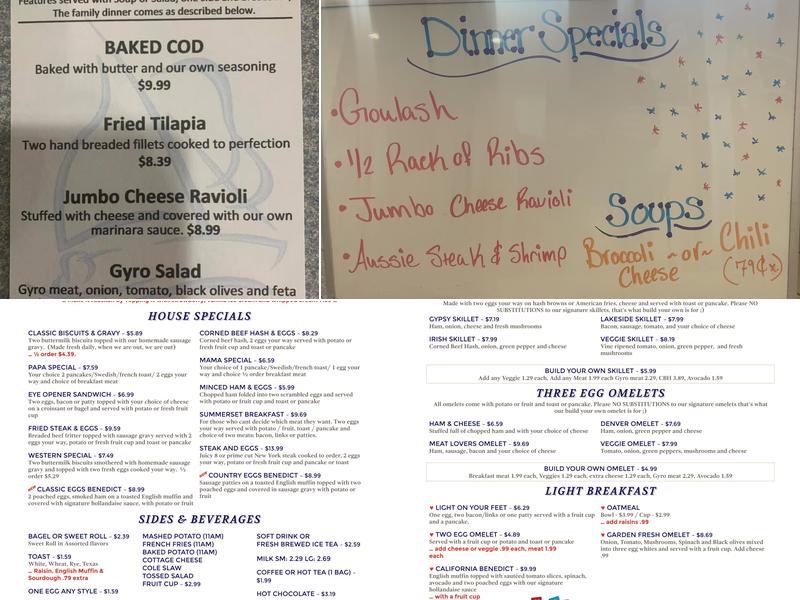 The family dinner comes as described below.
BAKED COD
Baked with butter and our own seasoning
$9.99
Fried Tilapia
Two hand breaded fillets cooked to perfection
$8.39
Jumbo Cheese Ravioli
Stuffed with cheese and covered with our own
marinara sauce. $8.99
Gyro Salad
Gyro meat, onion, tomato, black olives and feta
Dinner Specials
•Goulash
•1/2 Rack of Ribs
•Jumbo Cheese Ravioli
•Aussie Steak & Shrimp
Soups
Broccoli ~or~ Chili
Cheese (79¢x)
HOUSE SPECIALS
CLASSIC BISCUITS & GRAVY - $5.89
Two buttermilk biscuits topped with our homemade sausage
gravy. (Made fresh daily, when we are out, we are out)
... ½ order $4.39.
PAPA SPECIAL - $7.59
Your choice 2 pancakes/Swedish/french toast/ 2 eggs your
way and choice of breakfast meat
EYE OPENER SANDWICH - $6.99
Two eggs, bacon or patty topped with your choice of cheese
on a croissant or bagel and served with potato or fresh fruit
cup
FRIED STEAK & EGGS - $9.59
Breaded beef fritter topped with sausage gravy served with 2
eggs your way, potato or fresh fruit cup and toast or pancake
WESTERN SPECIAL - $7.49
Two buttermilk biscuits smothered with homemade sausage
gravy and topped with two fresh eggs cooked your way. ½
order $5.29
CLASSIC EGGS BENEDICT - $8.99
2 poached eggs, smoked ham on a toasted English muffin and
covered with signature hollandaise sauce, with potato or fruit
CORNED BEEF HASH & EGGS - $8.29
Corned beef hash, 2 eggs your way and served with potato or
fresh fruit cup and toast or pancake
MAMA SPECIAL - $6.59
Your choice of 1 pancake/Swedish/french toast/ 1 egg your
way and choice ½ order breakfast meat
MINCED HAM & EGGS - $5.99
Chopped ham folded into two scrambled eggs and served
with potato or fruit cup and toast or pancake
SUMMERSET BREAKFAST - $9.69
For those who cant decide which meat they want. Two eggs
your way served with potato / fruit, toast / pancake and
choice of two meats; bacon, links or patties.
STEAK AND EGGS - $13.99
Juicy 8 or prime cut New York steak cooked to order, 2 eggs
your way, potato or fresh fruit cup and pancake or toast
COUNTRY EGGS BENEDICT - $8.99
Sausage patties on a toasted English muffin topped with two
poached eggs and covered in sausage gravy with potato or
fruit
SIDES & BEVERAGES
BAGEL OR SWEET ROLL - $2.39
Sweet Roll in Assorted flavors
TOAST - $1.59
White, Wheat, Rye, Texas
... Raisin, English Muffin &
Sourdough .79 extra
ONE EGG ANY STYLE - $1.59
MASHED POTATO (11AM)
FRENCH FRIES (11AM)
BAKED POTATO (11AM)
COTTAGE CHEESE
COLE SLAW
TOSSED SALAD
FRUIT CUP - $2.99
SOFT DRINK OR
FRESH BREWED ICE TEA - $2.59
MILK SM: 2.29 LG: 2.69
COFFEE OR HOT TEA (1 BAG) -
$1.99
HOT CHOCOLATE - $3.19
Made with two eggs your way on hash browns or American fries, cheese and served with toast or pancake. Please NO
SUBSTITUTIONS to our signature skillets, that's what build your own is for ;)
GYPSY SKILLET - $7.19
Ham, onion, cheese and fresh mushrooms
IRISH SKILLET - $7.99
Corned Beef Hash, onion, green pepper and cheese
LAKESIDE SKILLET - $7.99
Bacon, sausage, tomato, and your choice of cheese
VEGGIE SKILLET - $8.19
Vine ripened tomato, onion, green pepper, and fresh
mushrooms
BUILD YOUR OWN SKILLET - $5.99
Add any Veggie 1.29 each, Add any Meat 1.99 each Gyro meat 2.29, CBH 3.89, Avocado 1.59
THREE EGG OMELETS
All omelets come with potato or fruit and toast or pancake. Please NO SUBSTITUTIONS to our signature omelets that's what
our build your own omelet is for ;)
HAM & CHEESE - $6.59
Stuffed full of chopped ham and with your choice of cheese
MEAT LOVERS OMELET - $9.69
Ham, sausage, bacon and your choice of cheese
DENVER OMELET - $7.69
Ham, onion, green pepper and cheese
VEGGIE OMELET - $7.99
Tomato, onion, green peppers, mushrooms and cheese
BUILD YOUR OWN OMELET - $4.99
Breakfast meat 1.99, Veggies 1.29 each, extra cheese 1.29 each, Gyro meat 2.29, Avocado 1.59
LIGHT BREAKFAST
♥ LIGHT ON YOUR FEET - $6.29
One egg, two bacon/links or one patty served with a fruit cup
and a pancake.
♥ TWO EGG OMELET - $4.89
Served with a fruit cup or potato and toast or pancake
... add cheese or veggie .99 each, meat 1.99
each
♥ CALIFORNIA BENEDICT - $9.99
English muffin topped with sautéed tomato slices, spinach,
avocado and two poached eggs with our signature
hollandaise sauce
... with a fruit cup
♥ OATMEAL
Bowl - $3.99 / Cup - $2.99
... add raisins .99
♥ GARDEN FRESH OMELET - $8.69
Onion, Tomato, Mushrooms, Spinach and Black olives mixed
into three egg whites and served with a fruit cup. Add cheese
.99